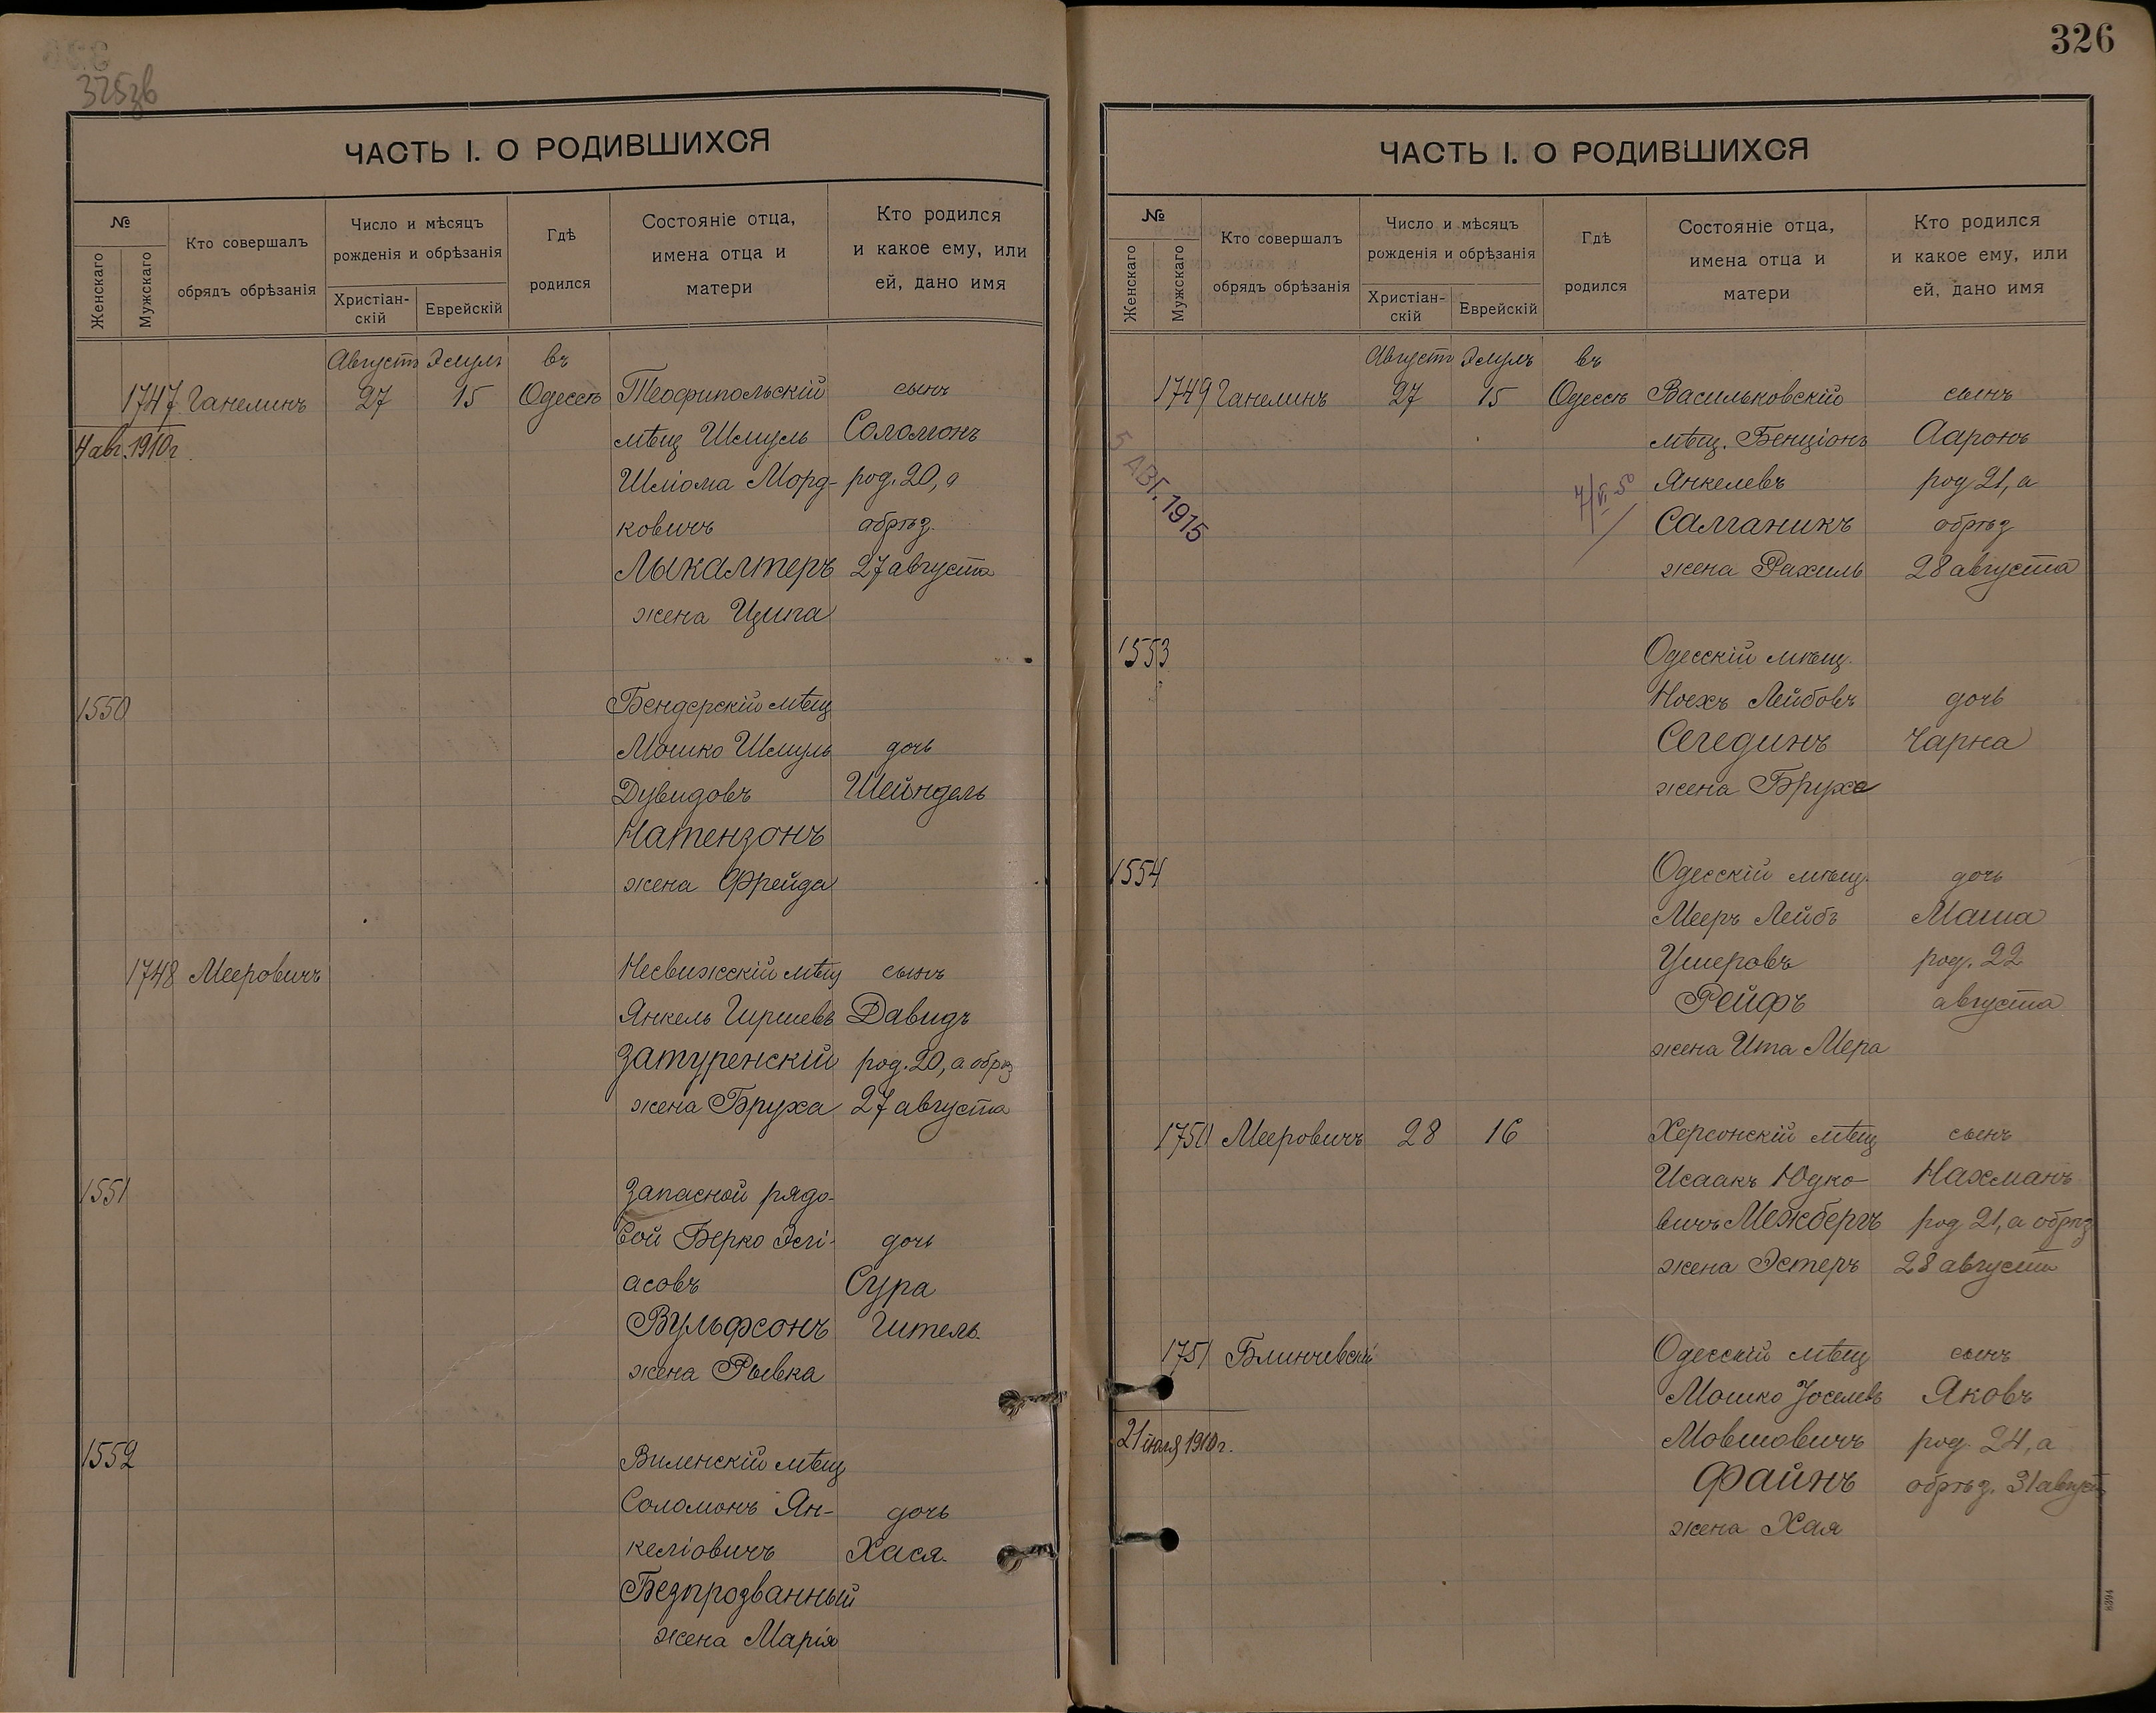 325зв
ЧАСТЬ I. О РОДИВШИХСЯ
№
Женскаго
Мужскаго
Кто совершалъ
обрядъ обрѣзанія
Число и мѣсяцъ
рожденія и обрѣзанія
Христіан-
скій
Еврейскій
Гдѣ
родился
Состояніе отца,
имена отца и
матери
Кто родился
и какое ему, или
ей, дано имя
Августъ Элулъ въ
1747 Ганелинъ 27 15 Одессѣ Теофипольскій сынъ
4 авг. 1910 г. мѣщ Шмуль Соломонъ
Шліома Морд- род. 20, а
ковичъ обрѣз.
Лыкалтеръ 27 августа
жена Ципа
1550 Бендерскій мѣщ
Мошко Шмуль дочь
Дувидовъ Шейндель
Натензонъ
жена Фрейда
1748 Мееровичъ Несвижскій мѣщ сынъ
Янкель Гиршевъ Давидъ
Затуренскій род. 20, а обрѣз
жена Бруха 27 августа
1551 Запасной рядо-
вой Берко Элі- дочь
асовъ Сура
Вульфсонъ Гитель.
жена Рывка
1552 Виленскій мѣщ
Соломонъ Ян- дочь
келіовичъ Хася.
Безпрозванный
жена Марія
326
ЧАСТЬ I. О РОДИВШИХСЯ
№
Женскаго
Мужскаго
Кто совершалъ
обрядъ обрѣзанія
Число и мѣсяцъ
рожденія и обрѣзанія
Христіан-
скій
Еврейскій
Гдѣ
родился
Состояніе отца,
имена отца и
матери
Кто родился
и какое ему, или
ей, дано имя
Августъ Элулъ въ
1749 Ганелинъ 27 15 Одессѣ Васильковскій сынъ
мѣщ. Бенціонъ Ааронъ
5 АВГ. 1915 Янкелевъ род 21, а
Салганикъ обрѣз
жена Рахиль 28 августа
1553 Одесскій мѣщ.
Ноехъ Лейбовъ дочь
Сегединъ Чарна
жена Бруха
1554 Одесскій мѣщ. дочь
Мееръ Лейбъ Маша
Ушеровъ род. 22
Рейфъ августа
жена Ита Мера
1750 Мееровичъ 28 16 Херсонскій мѣщ сынъ
Исаакъ Юдко- Нахманъ
вичъ Межбергъ род 21, а обрѣз
жена Эстеръ 28 августа
1751 Блинчевскій Одесскій мѣщ сынъ
Мошко Іоселевъ Яковъ
21 іюля 1910 г. Мовшовичъ род. 24, а
Файнъ обрѣз. 31 август
жена Хая